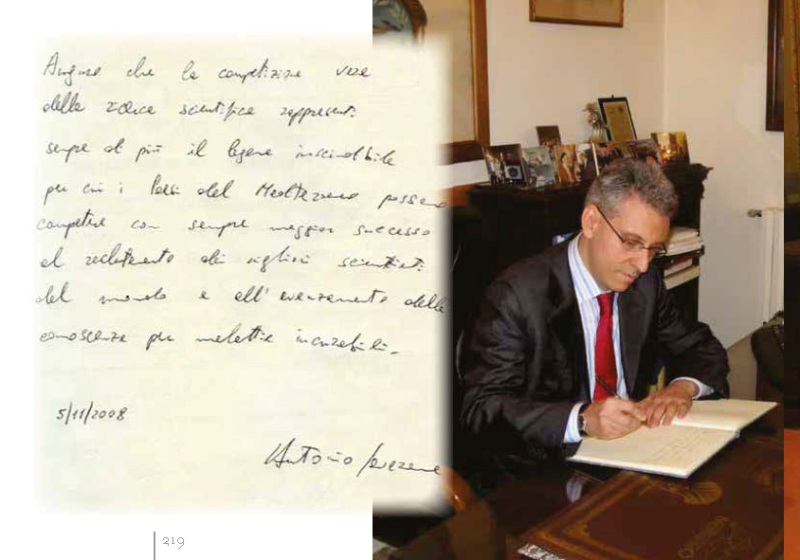 Auguro che la competizione vera
della ricerca scientifica rappresenti
sempre di più il legame inscindibile
per cui i Paesi del Mediterraneo possano
competere con sempre maggior successo
al reclutamento dei migliori scienziati
del mondo e all'avanzamento delle
conoscenze per malattie incurabili.
5/11/2008
Antonio
219